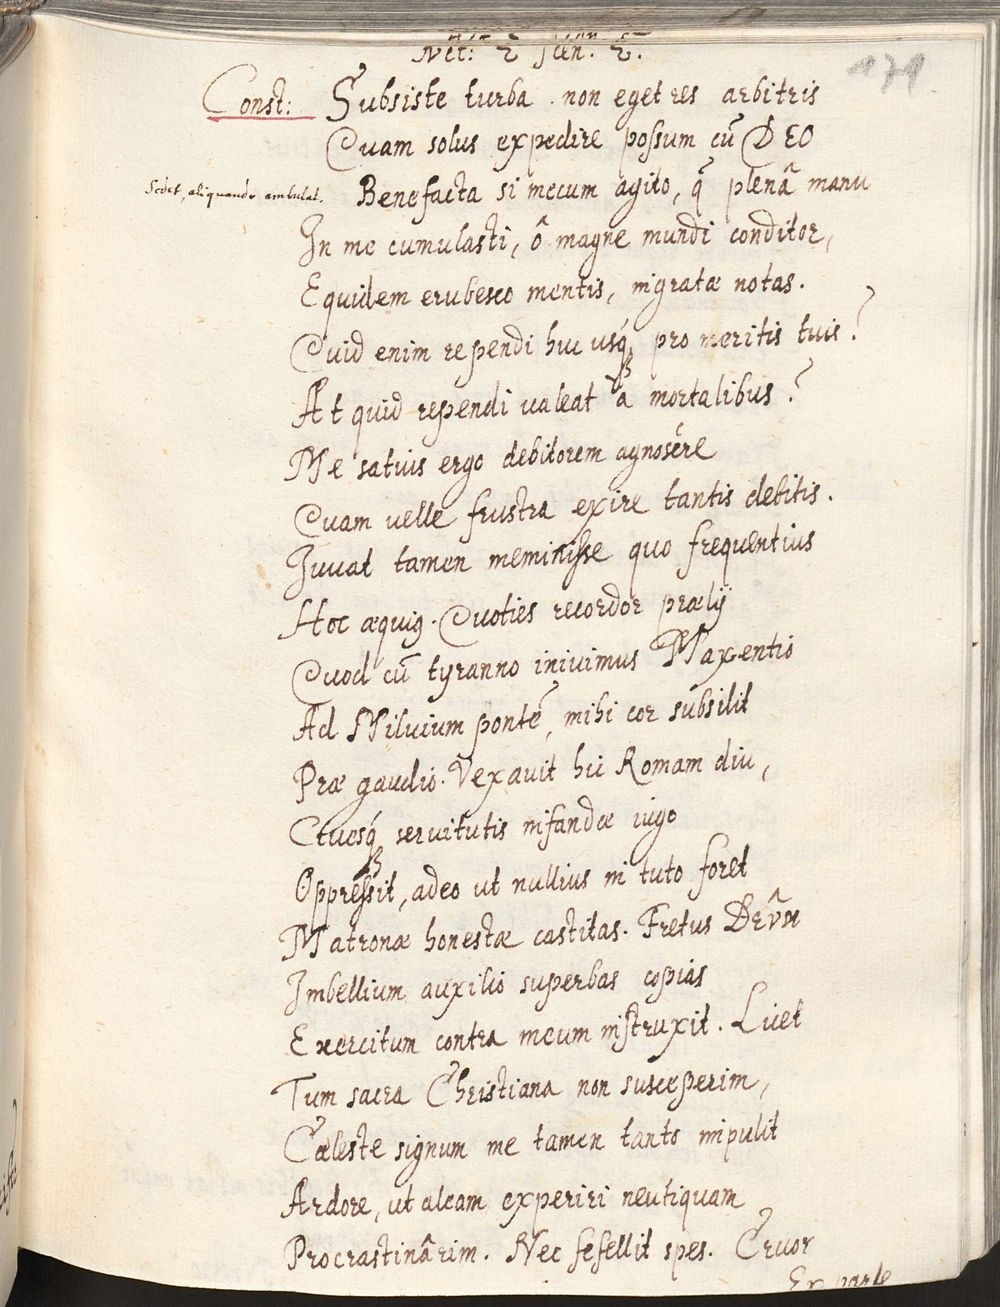 171
Const: Subsiste turba . non eget res arbitris
Quam solus expedire possum cū DEO
Sedet, aliquando ambulat.
Benefacta si mecum agito, q̄ plenâ manu
In me cumulasti, ô magne mundi conditor,
Equidem erubesco mentis, ingratæ notas.
Quid enim rependi huc usq́, pro meritis tuis?
At quid rependi valeat à mortalibus?
Me satius ergo debitorem agnoscére
Quam velle frustra exire tantis debitis.
Juvat tamen meminisse quo frequentius
Hoc æquig. Quoties recordor prælij
Quod cū tyranno inivimus Maxentio
Ad Milvium pontē, mihi cor subsilit
Præ gaudio. Vexavit hic Romam diu,
Civesq́ servitutis infandæ iugo
Oppressit, adeo ut nullius in tuto foret
Matronæ honestæ castitas. Fretus DEÛM
Imbellium auxilio superbas copias
Exercitum contra meum instruxit. Licet
Tum sacra Christiana non susceperim,
Cæleste signum me tamen tanto impulit
Ardore, ut aleam experiri neutiquam
Procrastinârim. Nec fefellit spes. Cruor
Ex parte